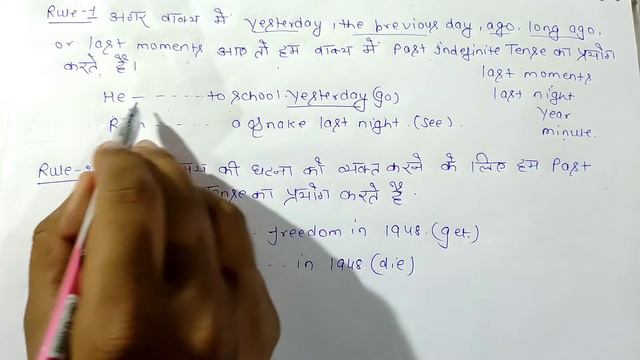 Rule-1 अगर वाक्य में yesterday, the previous day, ago, long ago,
or last moments आए तो हम वाक्य में Past indefinite Tense का प्रयोग
करते हैं।
last moments
last night
year
minute.
He - - - - - - to school yesterday (go)
a snake last night. (see).
Rule- की घटना को व्यक्त करने के लिए हम Past
Tense का प्रयोग करते हैं
freedom in 1948. (get)
in 1948 (die)